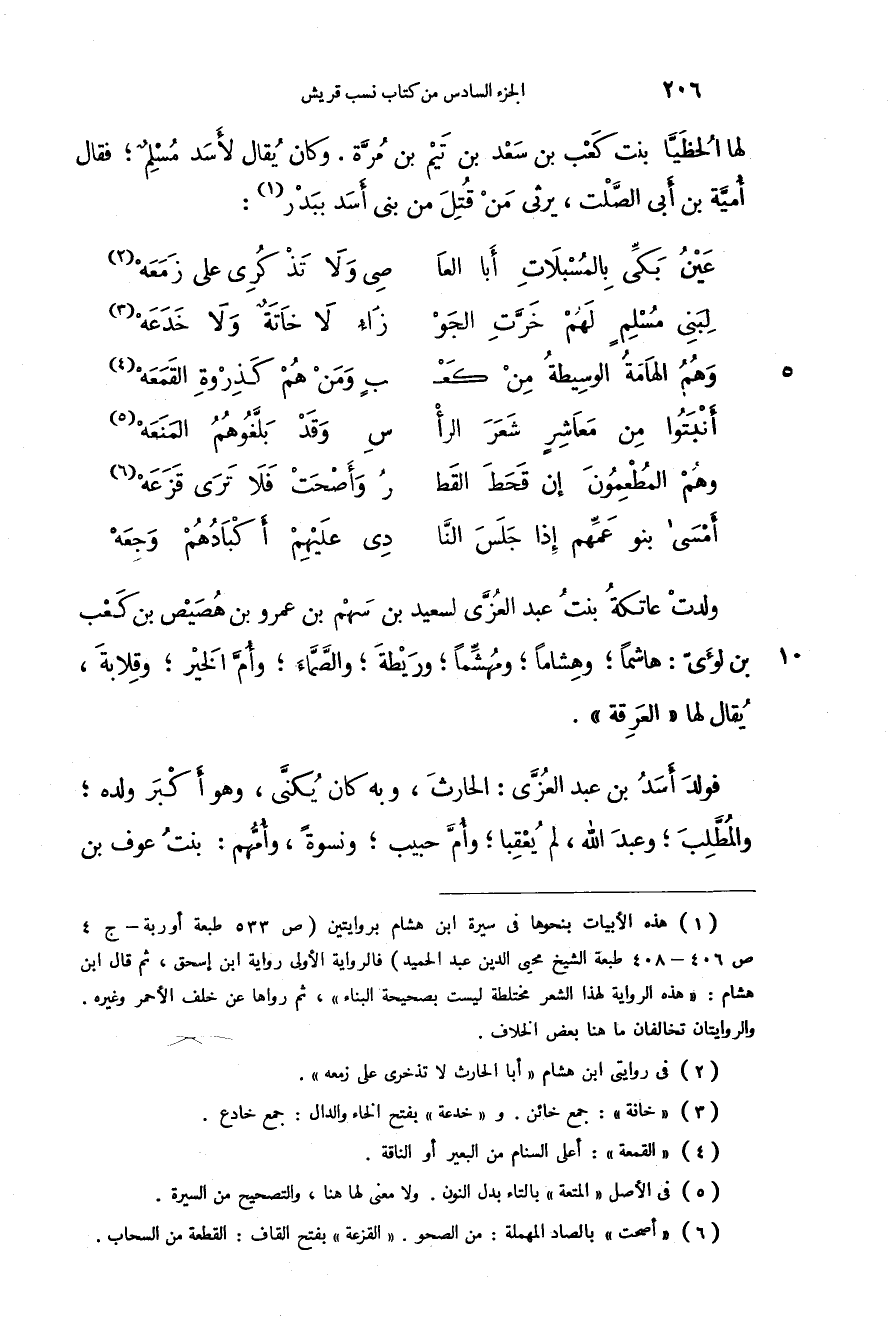 ٢٠٦ الجزء السادس من كتاب نسب قريش
لها الحُظَيَّا بنت كَعْب بن سَعْد بن تَيْم بن مُرَّة . وكان يُقال لأَسَد مُسْلِمٌ ؛ فقال
أُميَّة بن أَبى الصَّلْت ، يرثى مَنْ قُتِلَ من بنى أَسَد ببَدْر (١) :
عَيْنُ بَكِّى بِالمُسْبَلَاتِ أَبا العَا صِى وَلَا تَذْكُرِى على زمَعَهْ (٢)
لِبَنِى مُسْلِمٍ لَهُمْ خَرَّتِ الجَوْ زَاءِ لَا خَانَةٌ وَلَا خَدَعَهْ (٣)
٥ وَهُمُ الهَامَةُ الوَسِيطَةُ مِنْ كَعْـ ـبٍ وَمَنْ هُمْ كَذِرْوَةِ القَمَعَهْ (٤)
أَنْبَتُوا مِن مَعَاشِرٍ شَعَرَ الرأْ سِ وَقَدْ بَلَّغُوهُمُ المَنَعَهْ (٥)
وهُمْ المُطْعِمُونَ إن قَحَطَ القَطـ ـرُ وَأَصْحَتْ فَلَا تَرَى قَزَعَهْ (٦)
أَمْسَى بنو عَمِّهم إِذا جَلَسَ النَّا دِى عَلَيْهِمْ أَكْبَادُهُمْ وَجِعَهْ
ولدتْ عاتكةُ بنتُ عبد العُزَّى لسعيد بن سَهْم بن عمرو بن هُصَيْص بن كَعْب
١٠ بن لوَّىّ : هاشماً ؛ وهِشاماً ؛ ومُهشِّماً ؛ ورَيْطةَ ؛ والصَّمَّاءَ ؛ وأُمَّ الخيْر ؛ وقِلابةَ ،
يُقال لها « العَرِقة » .
فولدَ أَسَدُ بن عبد العُزَّى : الحارثَ ، وبه كان يُكنَّى ، وهو أَكْبَرَ ولده ؛
والمُطَّلِبَ ؛ وعبدَ الله ، لم يُعْقِبا ؛ وأُمَّ حبيب ؛ ونسوةً ، وأُمُّهم : بنتُ عوف بن
(١) هذه الأبيات بنحوها فى سيرة ابن هشام بروايتين ( ص ٥٣٣ طبعة أوربة – ج ٤
ص ٤٠٦ – ٤٠٨ طبعة الشيخ محيى الدين عبد الحميد ) فالرواية الأولى رواية ابن إسحق ، ثم قال ابن
هشام : « هذه الرواية لهذا الشعر مختلطة ليست بصحيحة البناء » ، ثم رواها عن خلف الأحمر وغيره .
والروايتان تخالفان ما هنا بعض الخلاف .
(٢) فى روايتى ابن هشام « أبا الحارث لا تذخرى على زمعه » .
(٣) « خانة » : جمع خائن . و « خدعة » بفتح الخاء والدال : جمع خادع .
(٤) « القمعة » : أعلى السنام من البعير أو الناقة .
(٥) فى الأصل « المتعة » بالتاء بدل النون . ولا معنى لها هنا ، والتصحيح من السيرة .
(٦) « أصحت » بالصاد المهملة : من الصحو . « القزعة » بفتح القاف : القطعة من السحاب .